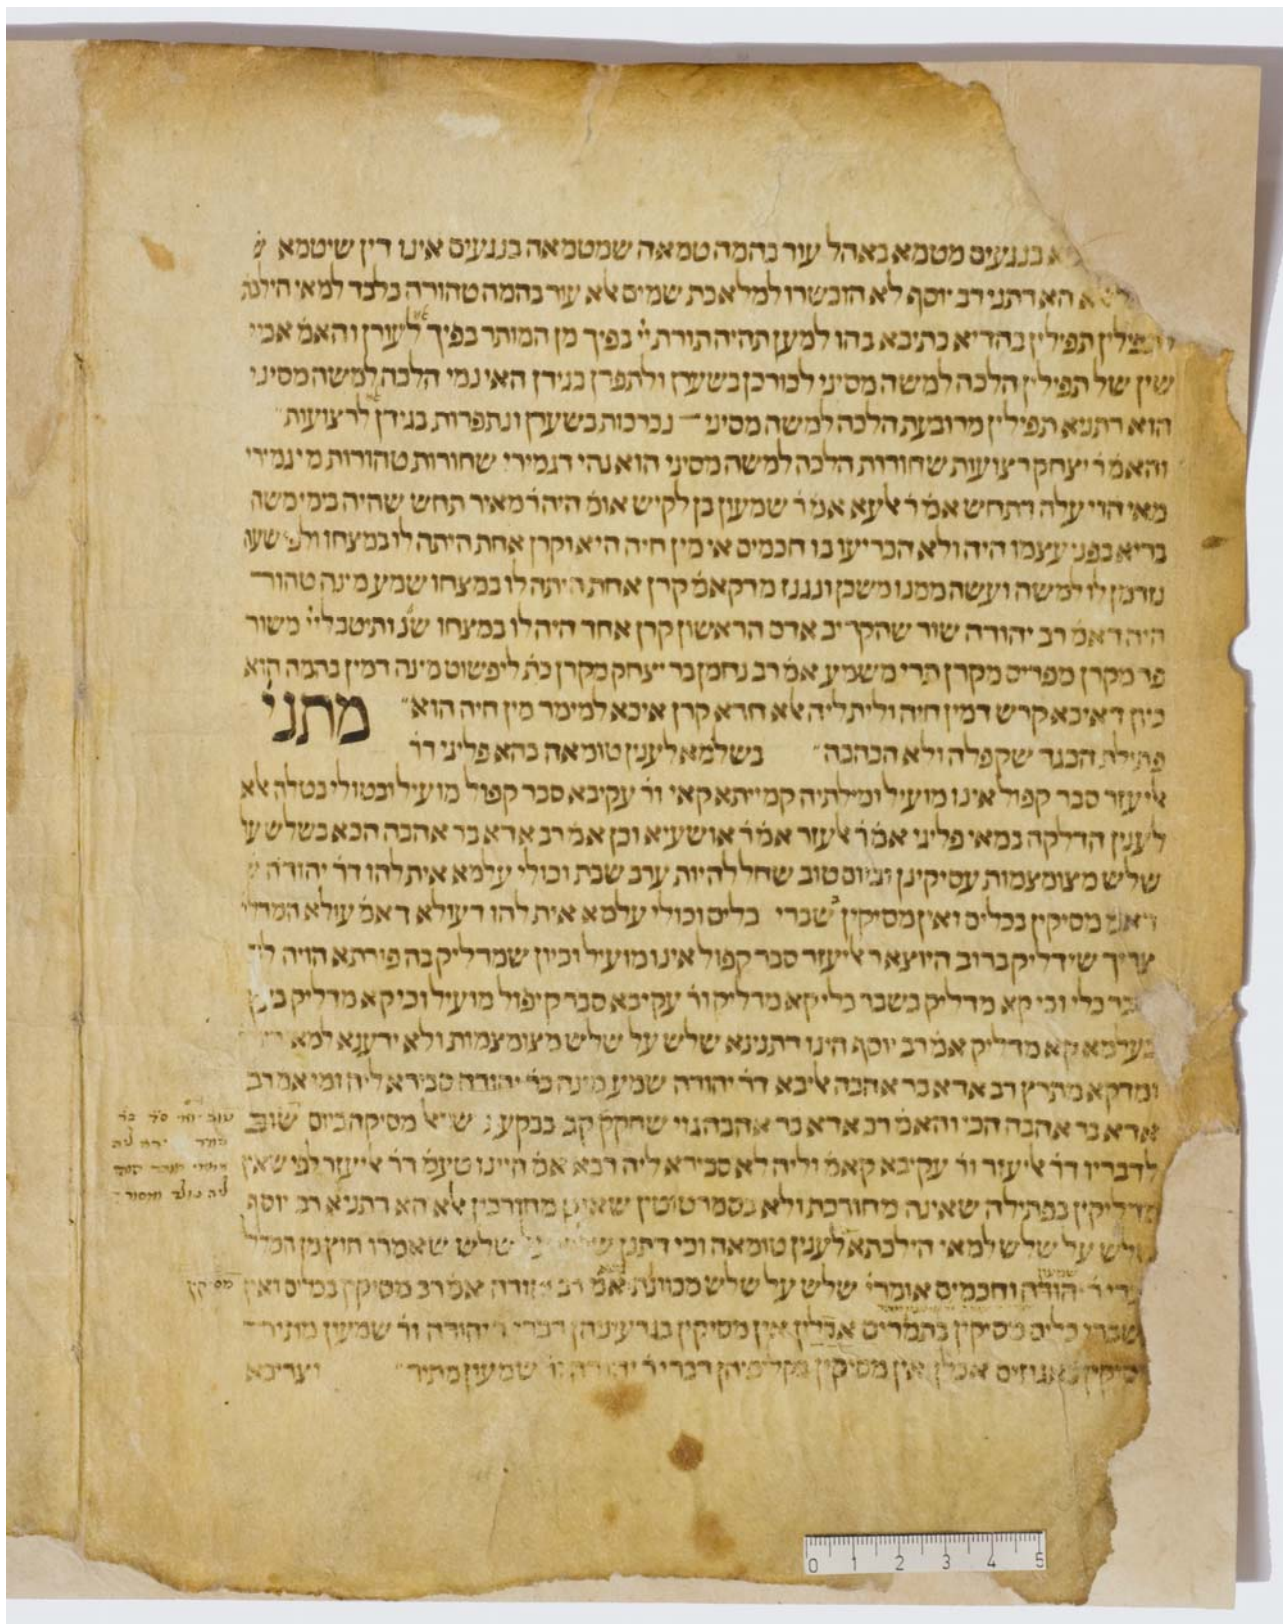 בנגעים מטמא באהל עור בהמה טמאה שמטמאה בנגעים אינו דין שיטמא
הא דתני רב יוסף לא הוכשרו למלאכת שמים אלא עור בהמה טהורה בלבד למאי הילכת
תפילין בהדיא כתיבא בהו למען תהיה תורת ייי בפיך מן המותר בפיך לעורן והאמ אביי
שין של תפילין הלכה למשה מסיני לכורכן בשערן ולתפרן בגידן האי נמי הלכה למשה מסיני
הוא דתניא תפילין מרובעת הלכה למשה מסיני נכרכות בשערן ונתפרות בגידן לרצועות
והאמ ר יצחק רצועות שחורות הלכה למשה מסיני הוא נהי דגמירי שחורות טהורות מי גמירי
מאי הוי עלה דתחש אמ ר אלעא אמ ר שמעון בן לקיש אומ היה ר מאיר תחש שהיה בימי משה
בריא בפני עצמו היה ולא הכריעו בו חכמים אי מין חיה היא וקרן אחת היתה לו במצחו ולפי שעה
נזדמן לו למשה ועשה ממנו משכן ונגנז מדקאמ קרן אחת היתה לו במצחו שמע מינה טהור
היה דאמ רב יהודה שור שהקריב אדם הראשון קרן אחד היה לו במצחו שנ ותיטב לייי משור
פר מקרן מפריס מקרן תרי משמע אמ רב נחמן בר יצחק מקרן כת ליפשוט מינה דמין בהמה הוא
כיון דאיכא קרש דמין חיה ולית ליה אלא חדא קרן איכא למימר מין חיה הוא מתני
פתילת הבגד שקפלה ולא הבהבה בשלמא לענין טומאה בהא פליגי דר
אליעזר סבר קפול אינו מועיל ומילתיה קמייתא קאי ור עקיבא סבר קפול מועיל ובטולי בטלה אלא
לענין הדלקה במאי פליגי אמ ר אלעזר אמ ר אושעיא וכן אמ רב אדא בר אהבה הכא בשלש על
שלש מצומצמות עסיקינן וביום טוב שחל להיות ערב שבת וכולי עלמא אית להו דר יהודה
מסיקין בכלים ואין מסיקין בשברי כלים וכולי עלמא אית להו דעולא דאמ עולא המדלי
צריך שידליק ברוב היוצא ר אליעזר סבר קפול אינו מועיל וכיון שמדליק בה פורתא הויה ליה
שבר כלי וכי קא מדליק בשבר כלי קא מדליק ור עקיבא סבר קיפול מועיל וכי קא מדליק
בעלמא קא מדליק אמ רב יוסף היינו דתנינא שלש על שלש מצומצמות ולא ידענא למאי
ומדקא מתרץ רב אדא בר אהבה אליבא דר יהודה שמע מינה כר יהודה סבירא ליה ומי אמ רב
אדא בר אהבה הכי והאמ רב אדא בר אהבה גוי שחקק קב בבקעת ישראל מסיקה ביום טוב
לדבריו דר אליעזר ור עקיבא קאמ וליה לא סבירא ליה רבא אמ היינו טעמ דר אליעזר לפי שאין
מדליקין בפתילה שאינה מחורכת ולא בסמרטוטין שאינן מחורכין אלא הא דתניא רב יוסף
שלש על שלש למאי הילכתא לענין טומאה וכי דתנן שלש על שלש שאמרו חוץ מן המלל
דברי ר יהודה וחכמים אומרי שלש על שלש מכוונות אמ רב יהודה אמ רב מסיקין בכלים ואין מסיקין
שמעון
בשברי כלים מסיקין בתמרים אכלן אין מסיקין בגרעיניהן דברי ר יהודה ור שמעון מתיר
מסיקין באגוזים אכלן אין מסיקין בקליפיהן דברי ר יהודה ור שמעון מתיר וצריכא
0 1 2 3 4 5